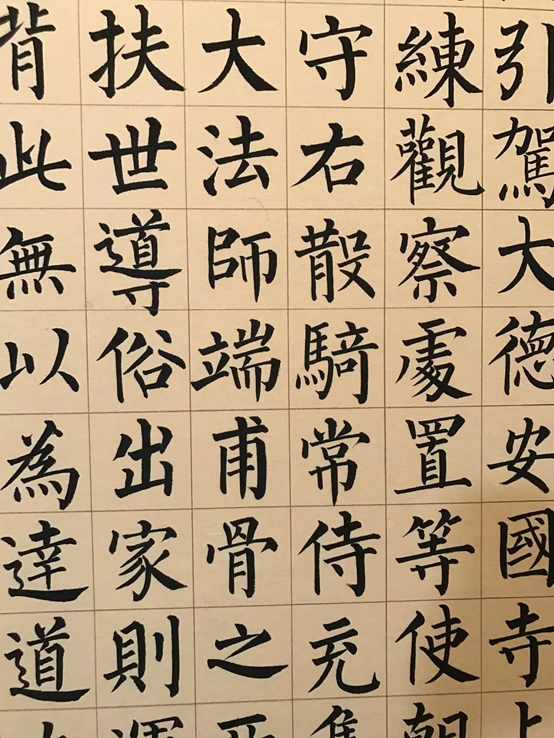 引駕大德安國寺上
練觀察處置等使朝
守右散騎常侍充
大法師端甫骨之
扶世導俗出家則運
背此無以為達道